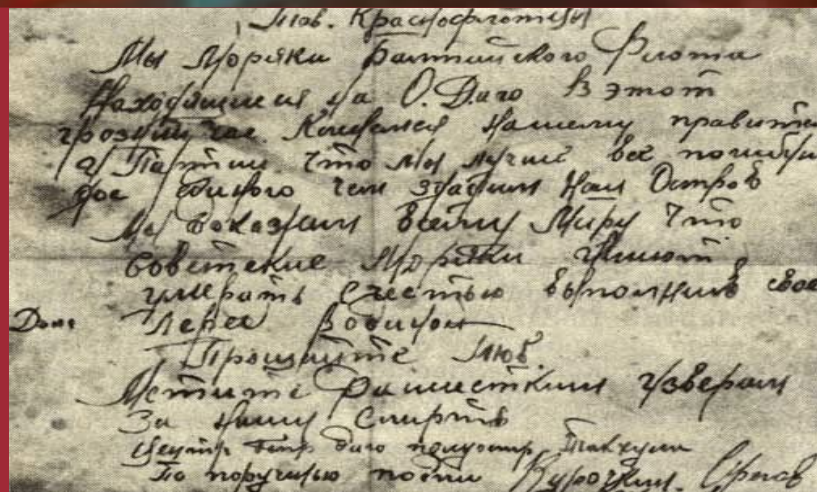 Тов. Краснофлотцы
Мы Моряки Балтийского Флота
Находящиеся на О. Даго В этот
грозный час Клянемся Нашему правите
и Партии что мы лучше все погибнем
до единого чем сдадим Наш Остров
Мы докажем всему Миру что
Советские Моряки умеют
умирать с честью выполнив свое
Долг Перед Родиной
Прощайте Тов.
Мстите Фашистким Извергам
За нашу Смерть
даго полуостр Такхуна
По поручению подпи Курочкин.